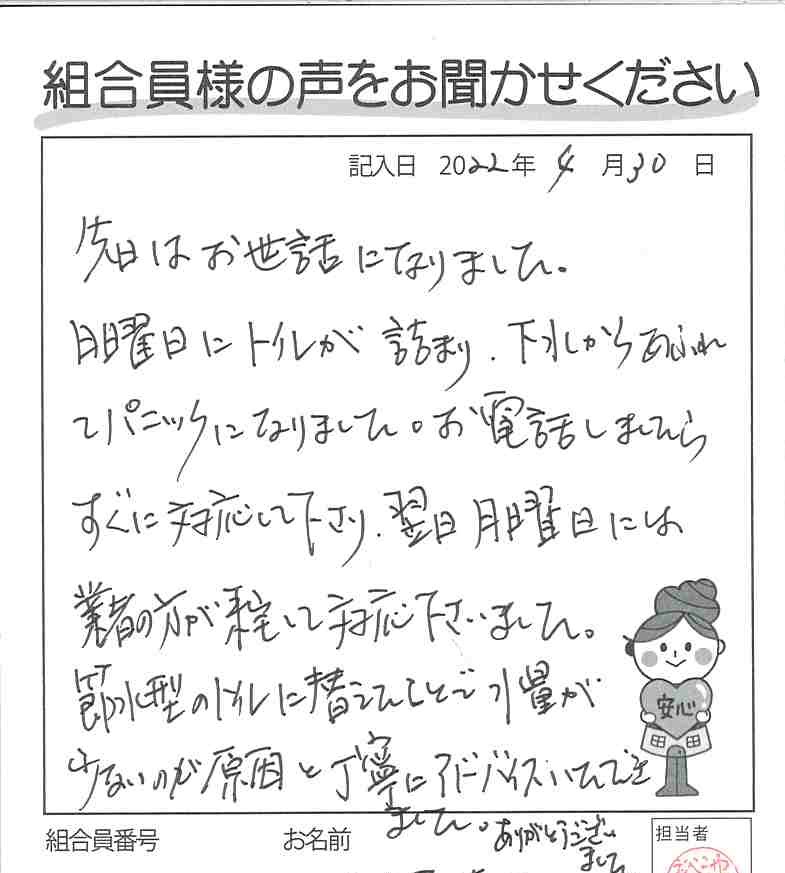 組合員様の声をお聞かせください
記入日 2022年 4月30日
先日はお世話になりました。
日曜日にトイレが詰まり、下水からあふれ
てパニックになりました。お電話しましたら
すぐに対応して下さり、翌日月曜日には
業者の方が来宅して対応下さいました。
節水型のトイレに替えたことで水量が
少ないのが原因と丁寧にアドバイスいただき
ました。ありがとうござい
ました
安心
組合員番号 お名前 担当者